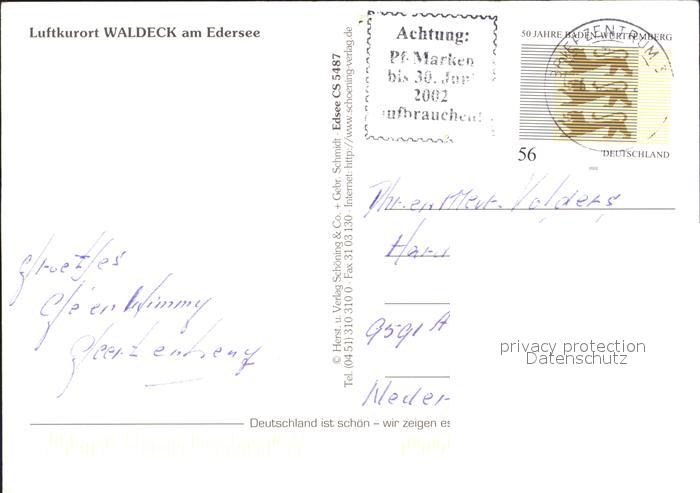 Luftkurort WALDECK am Edersee
© Herst. u. Verlag Schöning & Co. + Gebr. Schmidt · Edsee CS 5487
Tel. (04 51) 310 310 0 · Fax 31 03 130 · Internet: http://www.schoening-verlag.de
Achtung:
Pf-Marken
bis 30. Juni
2002
aufbrauchen!
50 JAHRE BADEN-WÜRTTEMBERG
BRIEFZENTRUM 3
56
DEUTSCHLAND
2002
Groetjes
Wimmy
Geert en
Har
9591 A
Neder
privacy protection
Datenschutz
Deutschland ist schön – wir zeigen es